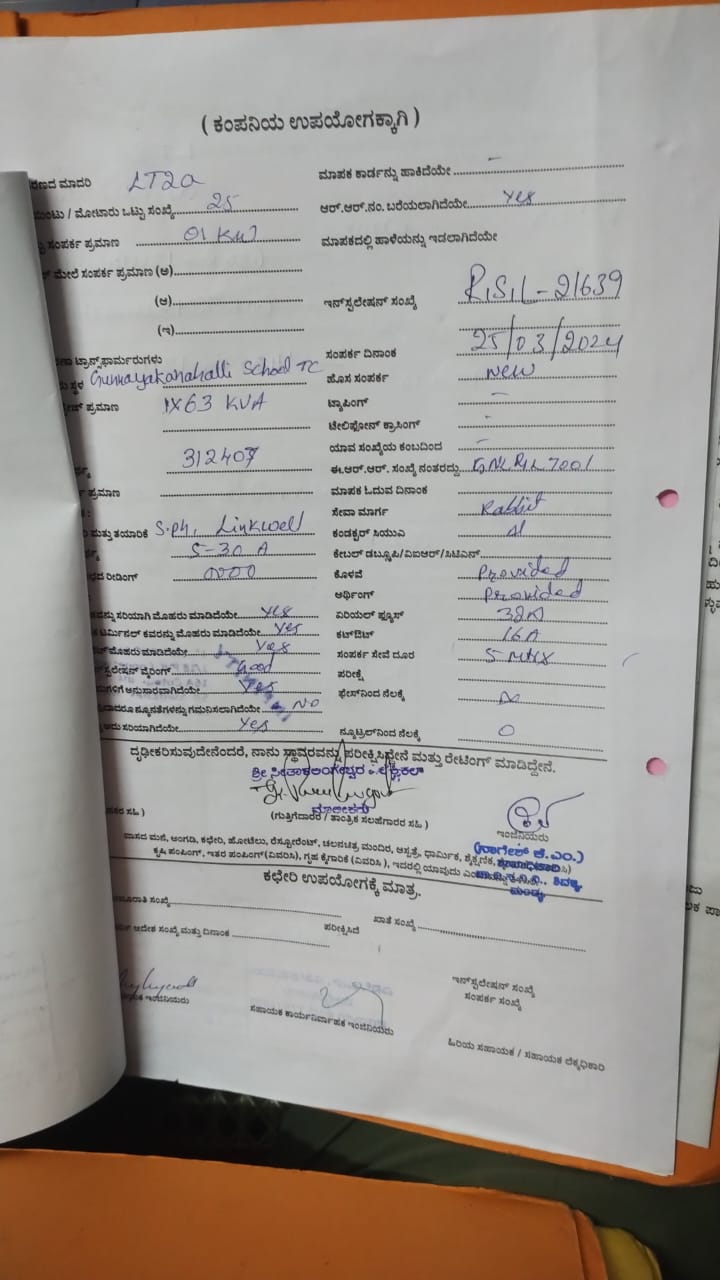 ( ಕಂಪನಿಯ ಉಪಯೋಗಕ್ಕಾಗಿ )
ಮಾದರಿ LT2a
ಮಾಪಕ ಕಾರ್ಡನ್ನು ಹಾಕಿದೆಯೇ –
/ ಮೋಟಾರು ಒಟ್ಟು ಸಂಖ್ಯೆ 25
ಆರ್.ಆರ್.ನಂ. ಬರೆಯಲಾಗಿದೆಯೇ yes
ಸಂಪರ್ಕ ಪ್ರಮಾಣ 01 KW
ಮಾಪಕದಲ್ಲಿ ಹಾಳೆಯನ್ನು ಇಡಲಾಗಿದೆಯೇ
ಮೇಲೆ ಸಂಪರ್ಕ ಪ್ರಮಾಣ (ಅ)
(ಆ)
ಇನ್‌ಸ್ಟಲೇಷನ್ ಸಂಖ್ಯೆ RISIL-21639
(ಇ)
ಟ್ರಾನ್ಸ್‌ಫಾರ್ಮರುಗಳು
ಸಂಪರ್ಕ ದಿನಾಂಕ 25/03/2024
School TC
ಹೊಸ ಸಂಪರ್ಕ New
ಪ್ರಮಾಣ 1X63 KVA
ಟ್ಯಾಪಿಂಗ್ –
ಟೆಲಿಫೋನ್ ಕ್ರಾಸಿಂಗ್ -
ಯಾವ ಸಂಖ್ಯೆಯ ಕಂಬದಿಂದ –
312407
ಈ.ಆರ್.ಆರ್. ಸಂಖ್ಯೆ ನಂತರದ್ದು
ಪ್ರಮಾಣ
ಮಾಪಕ ಓದುವ ದಿನಾಂಕ
ಸೇವಾ ಮಾರ್ಗ Rabbit
ಮತ್ತು ತಯಾರಿಕೆ S.Ph, Linkwell
ಕಂಡಕ್ಟರ್ ಸಿಯುವಿ Al
5-30 A
ಕೇಬಲ್ ಡಬ್ಲ್ಯೂಪಿ/ವಿಐಆರ್/ಸಿಟಿಎಸ್
ರೀಡಿಂಗ್ 0000
ಕೊಳವೆ Provided
ಅರ್ಥಿಂಗ್ Provided
ಸರಿಯಾಗಿ ಮೊಹರು ಮಾಡಿದೆಯೇ yes
ಏರಿಯಲ್ ಫ್ಯೂಸ್ 32A
ಟರ್ಮಿನಲ್ ಕವರನ್ನು ಮೊಹರು ಮಾಡಿದೆಯೇ yes
ಕಟ್‌ಔಟ್ 16A
ಮೊಹರು ಮಾಡಿದೆಯೇ yes
ಸಂಪರ್ಕ ಸೇವೆ ದೂರ 5 Mtrs
ವೈರಿಂಗ್ Good
ಪರೀಕ್ಷೆ
ಅನುಸಾರವಾಗಿದೆಯೇ Yes
ಫೇಸ್‌ನಿಂದ ನೆಲಕ್ಕೆ ∞
ನ್ಯೂನತೆಗಳನ್ನು ಗಮನಿಸಲಾಗಿದೆಯೇ NO
ಸರಿಯಾಗಿದೆಯೇ Yes
ನ್ಯೂಟ್ರಲ್‌ನಿಂದ ನೆಲಕ್ಕೆ 0
ದೃಢೀಕರಿಸುವುದೇನೆಂದರೆ, ನಾನು ಸ್ಥಾವರವನ್ನು ಪರೀಕ್ಷಿಸಿದ್ದೇನೆ ಮತ್ತು ರೇಟಿಂಗ್ ಮಾಡಿದ್ದೇನೆ.
ಮಾಲೀಕರು
ಸಹಿ )
(ಗುತ್ತಿಗೆದಾರರ / ತಾಂತ್ರಿಕ ಸಲಹೆಗಾರರ ಸಹಿ )
ಇಂಜಿನಿಯರು
(ನಾಗೇಶ್ ಕೆ.ಎಂ.)
ವಾಸದ ಮನೆ, ಅಂಗಡಿ, ಕಛೇರಿ, ಹೋಟೆಲು, ರೆಸ್ಟೋರೆಂಟ್, ಚಲನಚಿತ್ರ ಮಂದಿರ, ಆಸ್ಪತ್ರೆ, ಧಾರ್ಮಿಕ, ಶೈಕ್ಷಣಿಕ,
ಕೃಷಿ ಪಂಪಿಂಗ್, ಇತರ ಪಂಪಿಂಗ್(ವಿವರಿಸಿ), ಗೃಹ ಕೈಗಾರಿಕೆ (ವಿವರಿಸಿ ), ಇದರಲ್ಲಿ ಯಾವುದು
ಮಂಡ್ಯ
ಕಛೇರಿ ಉಪಯೋಗಕ್ಕೆ ಮಾತ್ರ.
ಸಂಖ್ಯೆ
ಖಾತೆ ಸಂಖ್ಯೆ
ಆದೇಶ ಸಂಖ್ಯೆ ಮತ್ತು ದಿನಾಂಕ
ಪರೀಕ್ಷಿಸಿದೆ
ಇನ್‌ಸ್ಟಲೇಷನ್ ಸಂಖ್ಯೆ
ಸಂಪರ್ಕ ಸಂಖ್ಯೆ
ಇಂಜಿನಿಯರು
ಸಹಾಯಕ ಕಾರ್ಯನಿರ್ವಾಹಕ ಇಂಜಿನಿಯರು
ಹಿರಿಯ ಸಹಾಯಕ / ಸಹಾಯಕ ಲೆಕ್ಕಾಧಿಕಾರಿ